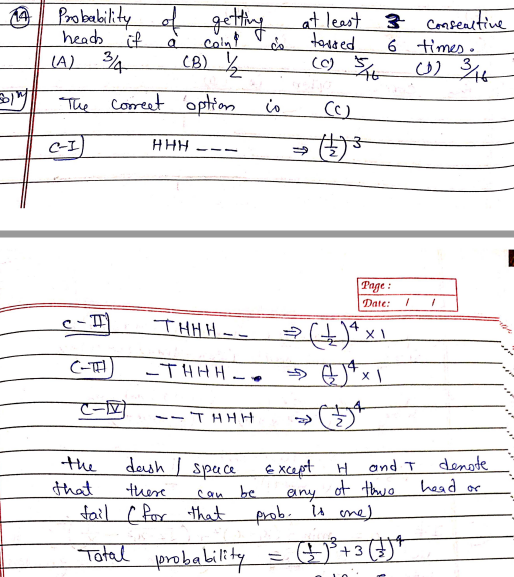 14 Probability of getting at least 3 consecutive
heads if a coin is tossed 6 times.
(A) 3/4 (B) 1/2 (C) 5/16 (D) 3/16
Solⁿ The correct option is (C)
C-I) HHH --- ⇒ (1/2)^3
Page:
Date: / /
C-II) THHH -- ⇒ (1/2)^4 × 1
C-III) -THHH -- ⇒ (1/2)^4 × 1
C-IV) -- THHH ⇒ (1/2)^4
the dash / space except H and T denote
that there can be any of thwo head or
tail (for that prob. is one)
Total probability = (1/2)^3 + 3(1/2)^4